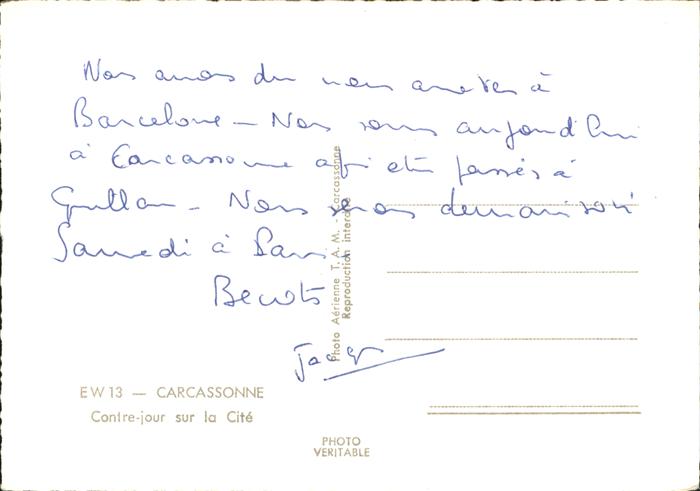 Nous avons du nous arreter à
Barcelone - Nous sommes aujourd'hui
à Carcassonne après être passés à
Nous serons demain soir
Samedi à Paris
Jacques
Photo Aérienne T. A. M. Carcassonne
Reproduction interdite
EW 13 — CARCASSONNE
Contre-jour sur la Cité
PHOTO
VERITABLE